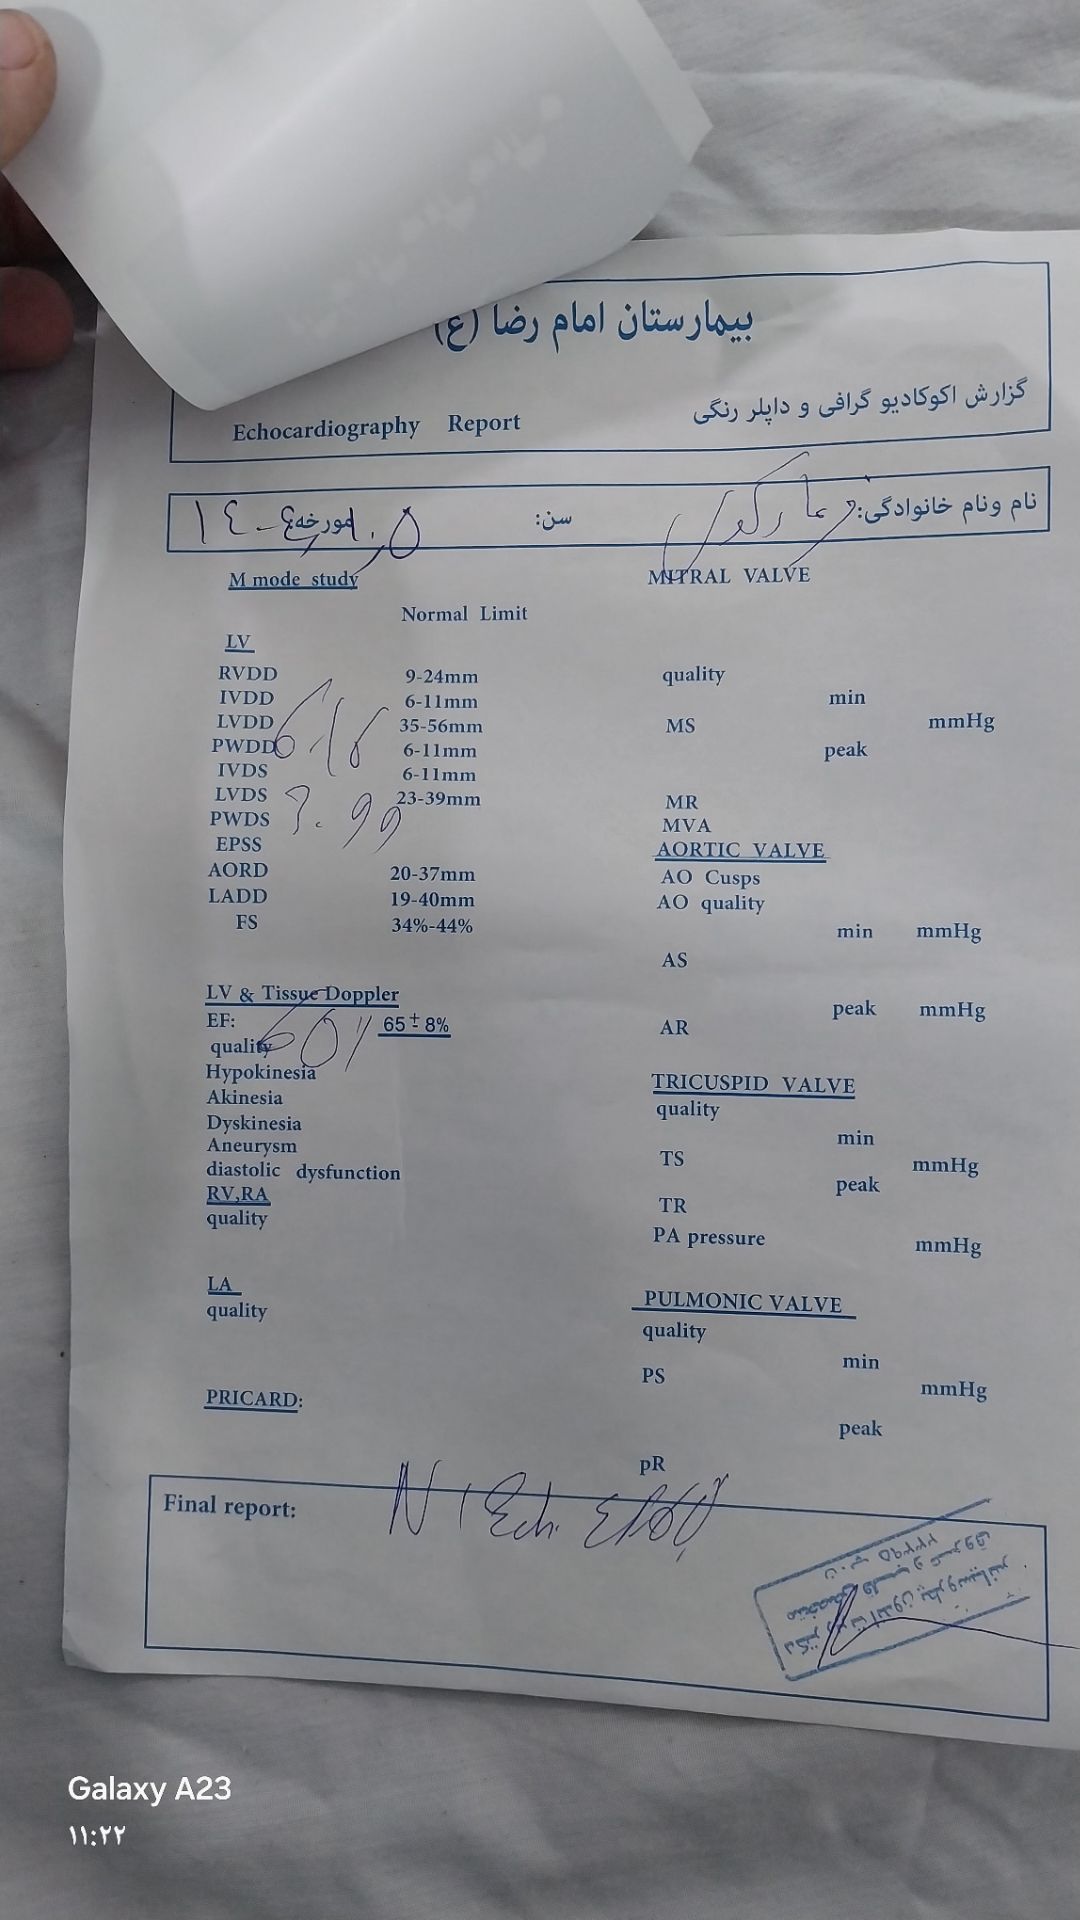 بیمارستان امام رضا (ع)
گزارش اکوکادیو گرافی و داپلر رنگی
Echocardiography Report
نام ونام خانوادگی:
سن:
مورخه
M mode study
Normal Limit
LV
RVDD 9-24mm
IVDD 6-11mm
LVDD 35-56mm
PWDD 6-11mm
IVDS 6-11mm
LVDS 23-39mm
PWDS
EPSS
AORD 20-37mm
LADD 19-40mm
FS 34%-44%
LV & Tissue Doppler
EF: 60% 65 ± 8%
quality
Hypokinesia
Akinesia
Dyskinesia
Aneurysm
diastolic dysfunction
RV,RA
quality
LA
quality
PRICARD:
MITRAL VALVE
quality
min
MS mmHg
peak
MR
MVA
AORTIC VALVE
AO Cusps
AO quality
min mmHg
AS
peak mmHg
AR
TRICUSPID VALVE
quality
min
TS mmHg
peak
TR
PA pressure mmHg
PULMONIC VALVE
quality
min
PS mmHg
peak
pR
Final report:
Galaxy A23
۱۱:۲۲